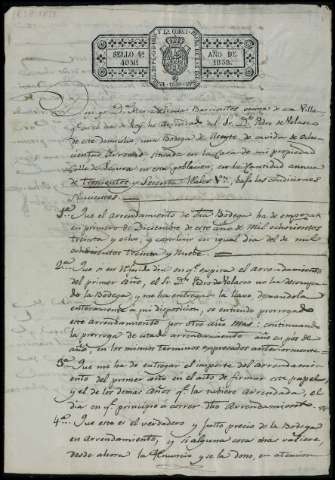 SELLO 4º
40 MS
AÑO DE
1838.
Digo yo Dª Barrientos vecina de esta Villa
q. en el dia de hoy he arrendado al Sr. Dn. Pedro de Velasco
de este domicilio una Bodega de Aceyte de cavidad de ochocientas
Arrovas, situada en la Casa de mi propiedad
Calle de en esta poblacion, en la cantidad annua
de Trescientos y Sesenta Reales Vn. bajo las condiciones
siguientes
1ª Que el arrendamiento de dha Bodega ha de empezar
en primero de Diciembre de este año de Mil ochocientos
treinta y ocho, y concluir en igual dia del de mil
ochocientos Treinta y Nueve
2ª Que si en el referido dia en q. espira el arrendamiento
del primer año, el Sr. Dn. Pedro de Velasco no ha desocupado
la Bodega y me ha entregado la llave dejandola
enteramente a mi disposicion, se entiende prorrogado
este arrendamiento por otro año mas: continuando
la prorroga de este arrendamiento año en pos de
año, en los mismos terminos expresados anteriormente.
3ª Que me ha de entregar el importe del arrendamiento
del primer año en el acto de firmar este papel
y el de los demas años q. la tubiere arrendada, el
dia en q. principie a correr dho Arrendamiento
4ª Que este es el verdadero y justo precio de la Bodega
en arrendamiento, y si alguna cosa mas valiere
desde ahora la renuncio y se la dono, en atencion